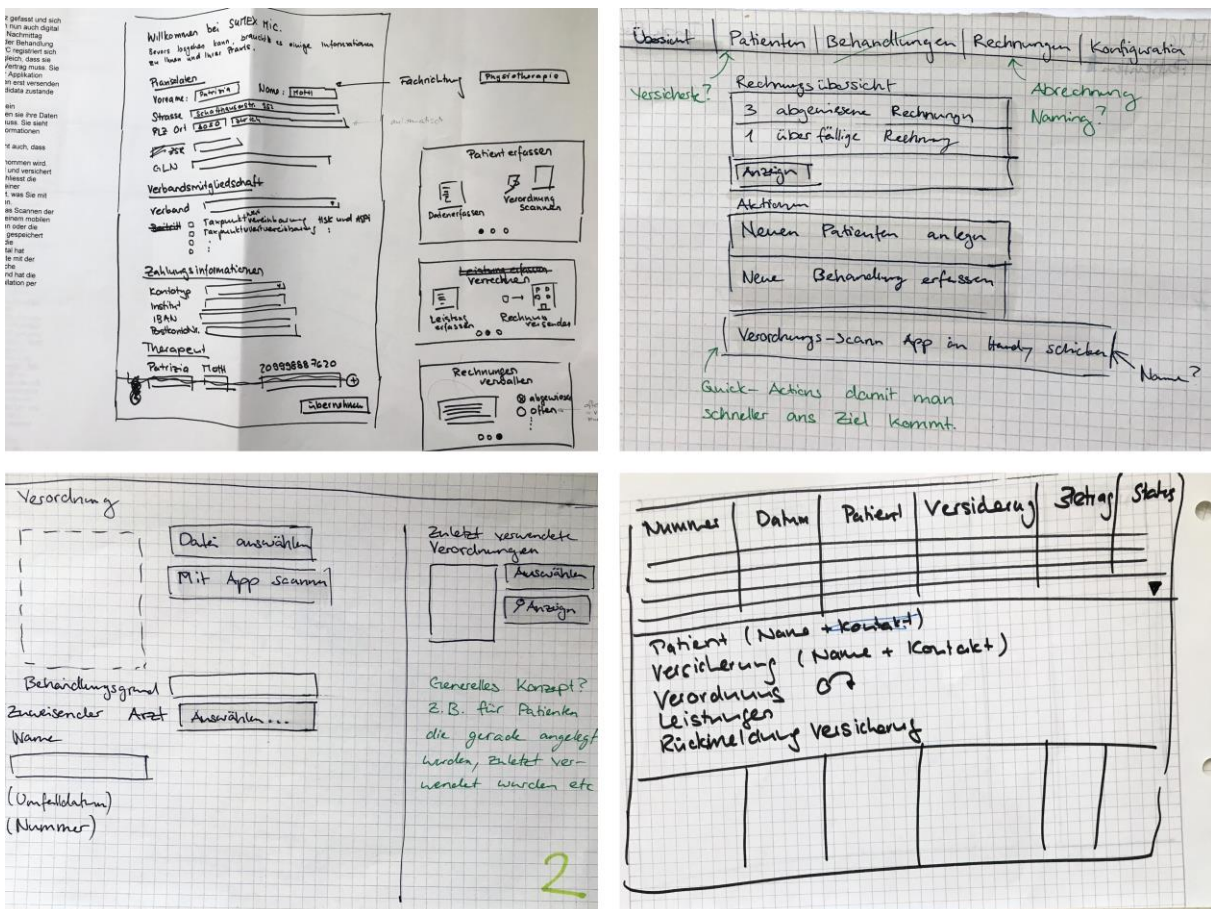 t gefasst und sich
n nun auch digital
Nachmittag
der Behandlung
C registriert sich
gleich, dass sie
Vertrag muss. Sie
Applikation
n erst versenden
didata zustande
ein
en sie ihre Daten
uss. Sie sieht
ormationen
t auch, dass
nommen wird.
und versichert
hliesst die
einer
t, was Sie mit
n.
as Scannen der
einem mobilen
n oder die
gespeichert
die
tal hat
te mit der
che
nd hat die
lation per
Willkommen bei SUMEX Mic.
Bevors losgehen kann, brauchts es einige Informationen
zu Ihnen und Ihrer Praxis.
Praxisdaten
Vorname: Patrizia Name: Motti
Strasse Schaffhauserstr. 552
PLZ Ort 8050 Zürich
ZSR
GLN
Verbandsmitgliedschaft
Verband
Beitritt Taxpunktwertvereinbarung HSK und
Taxpunktwertvereinbarung :
Zahlungsinformationen
Kontotyp
Institut
IBAN
PostkontoNr.
Therapeut
Patrizia Motti 209998887620
übernehmen
Fachrichtung Physiotherapie
automatisch
Patient erfassen
Datenerfassen
Verordnung
scannen
Leistung erfassen
Verrechnen
Leistung
erfassen
Rechnung
versenden
Rechnungen
verwalten
abgewiesen
offen
Übersicht Patienten Behandlungen Rechnungen Konfiguration
Versicherte?
Abrechnung
Naming?
Rechnungsübersicht
3 abgewiesene Rechnungen
1 überfällige Rechnung
Anzeigen
Aktionen
Neuen Patienten anlegen
Neue Behandlung erfassen
Verordnungs-Scann App an Handy schicken
Name?
Quick-Actions damit man
schneller ans Ziel kommt.
Verordnung
Datei auswählen
Mit App scannen
Behandlungsgrund
Zuweisender Arzt Auswählen...
Name
(Unfalldatum)
(Nummer)
Zuletzt verwendete
Verordnungen
Auswählen
Anzeigen
Generelles Konzept?
z.B. für Patienten
die gerade angelegt
wurden, zuletzt ver-
wendet wurden etc
2
Nummer Datum Patient Versicherung Betrag Status
Patient (Name + Kontakt)
Versicherung (Name + Kontakt)
Verordnung
Leistungen
Rückmeldung Versicherung